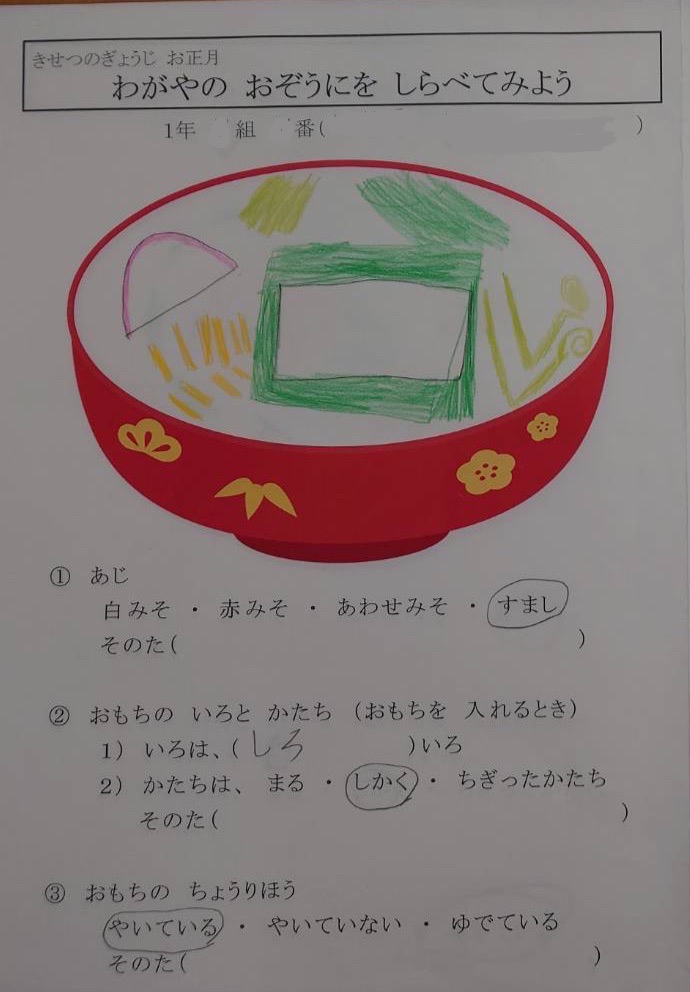 きせつのぎょうじ お正月
わがやの おぞうにを しらべてみよう
1年 組 番( )
① あじ
白みそ ・ 赤みそ ・ あわせみそ ・ すまし
そのた( )
② おもちの いろと かたち (おもちを 入れるとき)
1) いろは、(しろ )いろ
2) かたちは、 まる ・ しかく ・ ちぎったかたち
そのた( )
③ おもちの ちょうりほう
やいている ・ やいていない ・ ゆでている
そのた( )